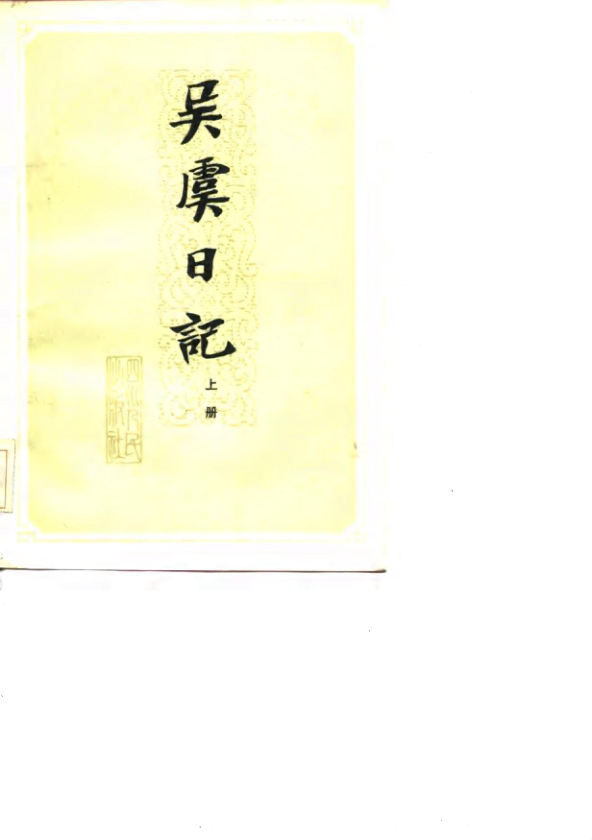 吴虞日記
上册
四川人民
出版社